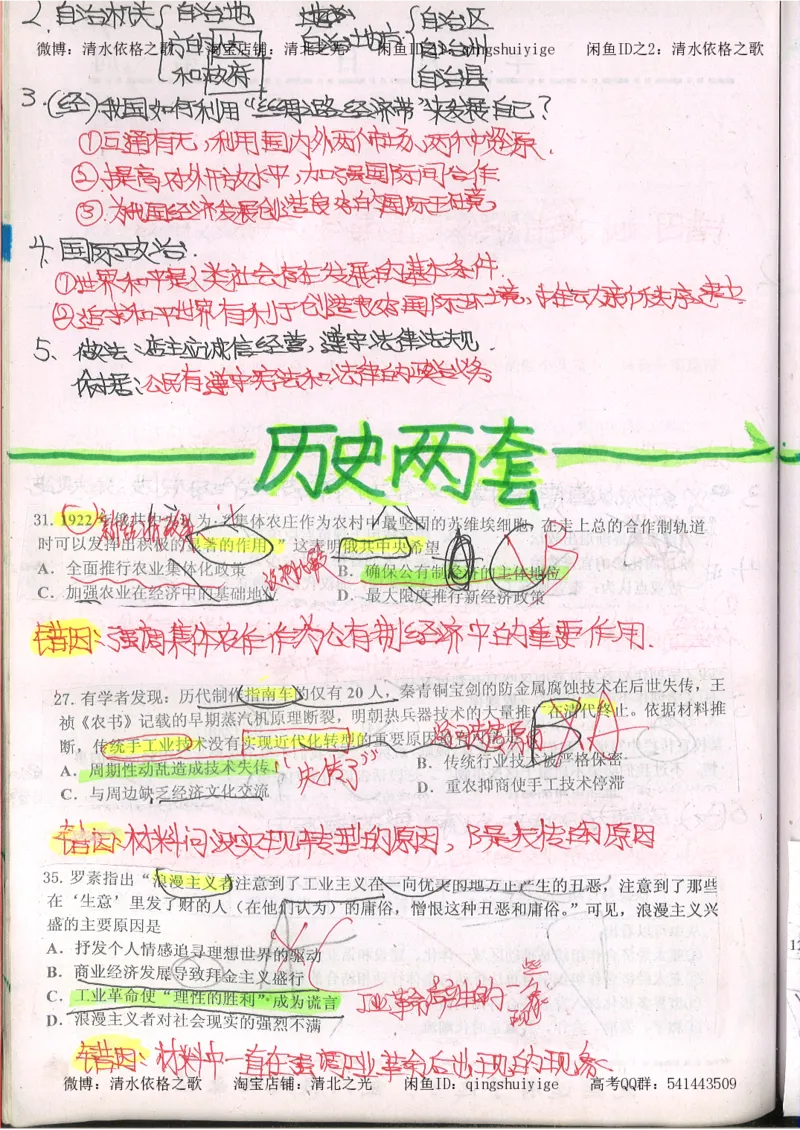 2. 自治机关 自治地 地 自治区
微博：清水依格之歌 淘宝店铺：清北之光 闲鱼ID之1：qingshuiyige 闲鱼ID之2：清水依格之歌
方的 人大 自治地方 自治州
和政府 自治县
3.(经)我国如何利用“丝绸之路经济带”来发展自己？
①互通有无，利用国内外两个市场、两种资源.
②提高对外开放水平，加强国际间合作.
③.为我国经济发展创造良好的国际环境
4.国际政治.
①世界和平是人类社会存在发展的基本条件.
②追求和平世界有利于创造良好国际环境，
5、做法：店主应诚信经营，遵守法律法规.
依据：公民有遵守宪法和法律的政治义务
历史两套
31. 1922 俄共 认为“集体农庄作为农村中最坚固的苏维埃细胞，在走上总的合作制轨道
时可以发挥出积极的显著的作用。”这表明俄共中央希望
A．全面推行农业集体化政策 B．确保公有制经济的主体地位
C．加强农业在经济中的基础地位 D．最大限度推行新经济政策
错因：强调集体农庄作为公有制经济中的重要作用.
27. 有学者发现：历代制作指南车的仅有 20 人，秦青铜宝剑的防金属腐蚀技术在后世失传，王
祯《农书》记载的早期蒸汽机原理断裂，明朝热兵器技术的大量推广在清代终止。依据材料推
断，传统手工业技术没有实现近代化转型的重要原因
A．周期性动乱造成技术失传 “失传了” B．传统行业技术被严格保密
C．与周边缺乏经济文化交流 D．重农抑商使手工技术停滞
错因：材料问没实现转型的原因，B是失传的原因
35. 罗素指出“浪漫主义者注意到了工业主义在一向优美的地方正产生的丑恶，注意到了那些
在‘生意’里发了财的人（在他们认为）的庸俗，憎恨这种丑恶和庸俗。”可见，浪漫主义兴
盛的主要原因是
A．抒发个人情感追寻理想世界的驱动
B．商业经济发展导致拜金主义盛行
C．工业革命使“理性的胜利”成为谎言 工业革命产生的一些现象
D．浪漫主义者对社会现实的强烈不满
错因：材料中一直在强调工业革命后出现的现象.
微博：清水依格之歌 淘宝店铺：清北之光 闲鱼ID：qingshuiyige 高考QQ群：541443509